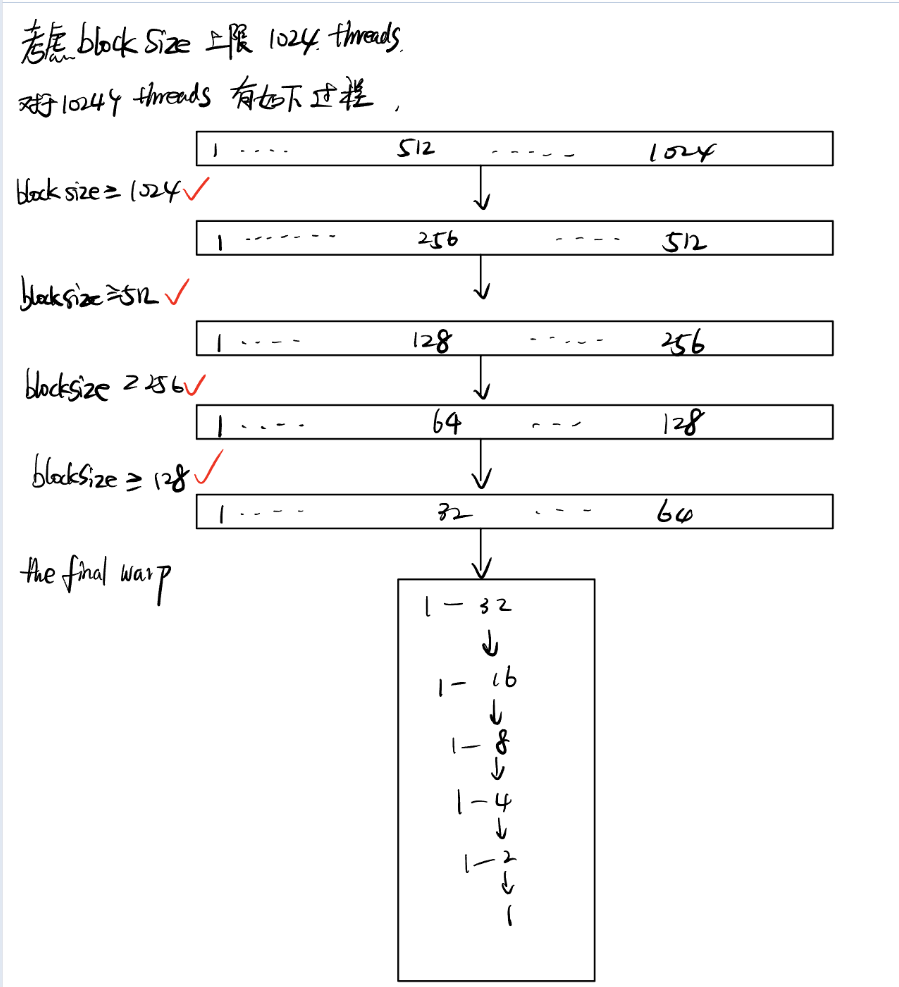 考虑 block size 上限 1024 threads.
对于1024个 threads 有如下过程,
1 ···· 512 ····· 1024
block size ≥ 1024 ✓
1 ······· 256 ···· 512
blocksize ≥ 512 ✓
1 ····· 128 ····· 256
blocksize ≥ 256 ✓
1 ···· 64 ··· 128
blocksize ≥ 128 ✓
1 ···· 32 ··· 64
the final warp
1 — 32
↓
1 — 16
↓
1 — 8
↓
1 — 4
↓
1 — 2
↓
1